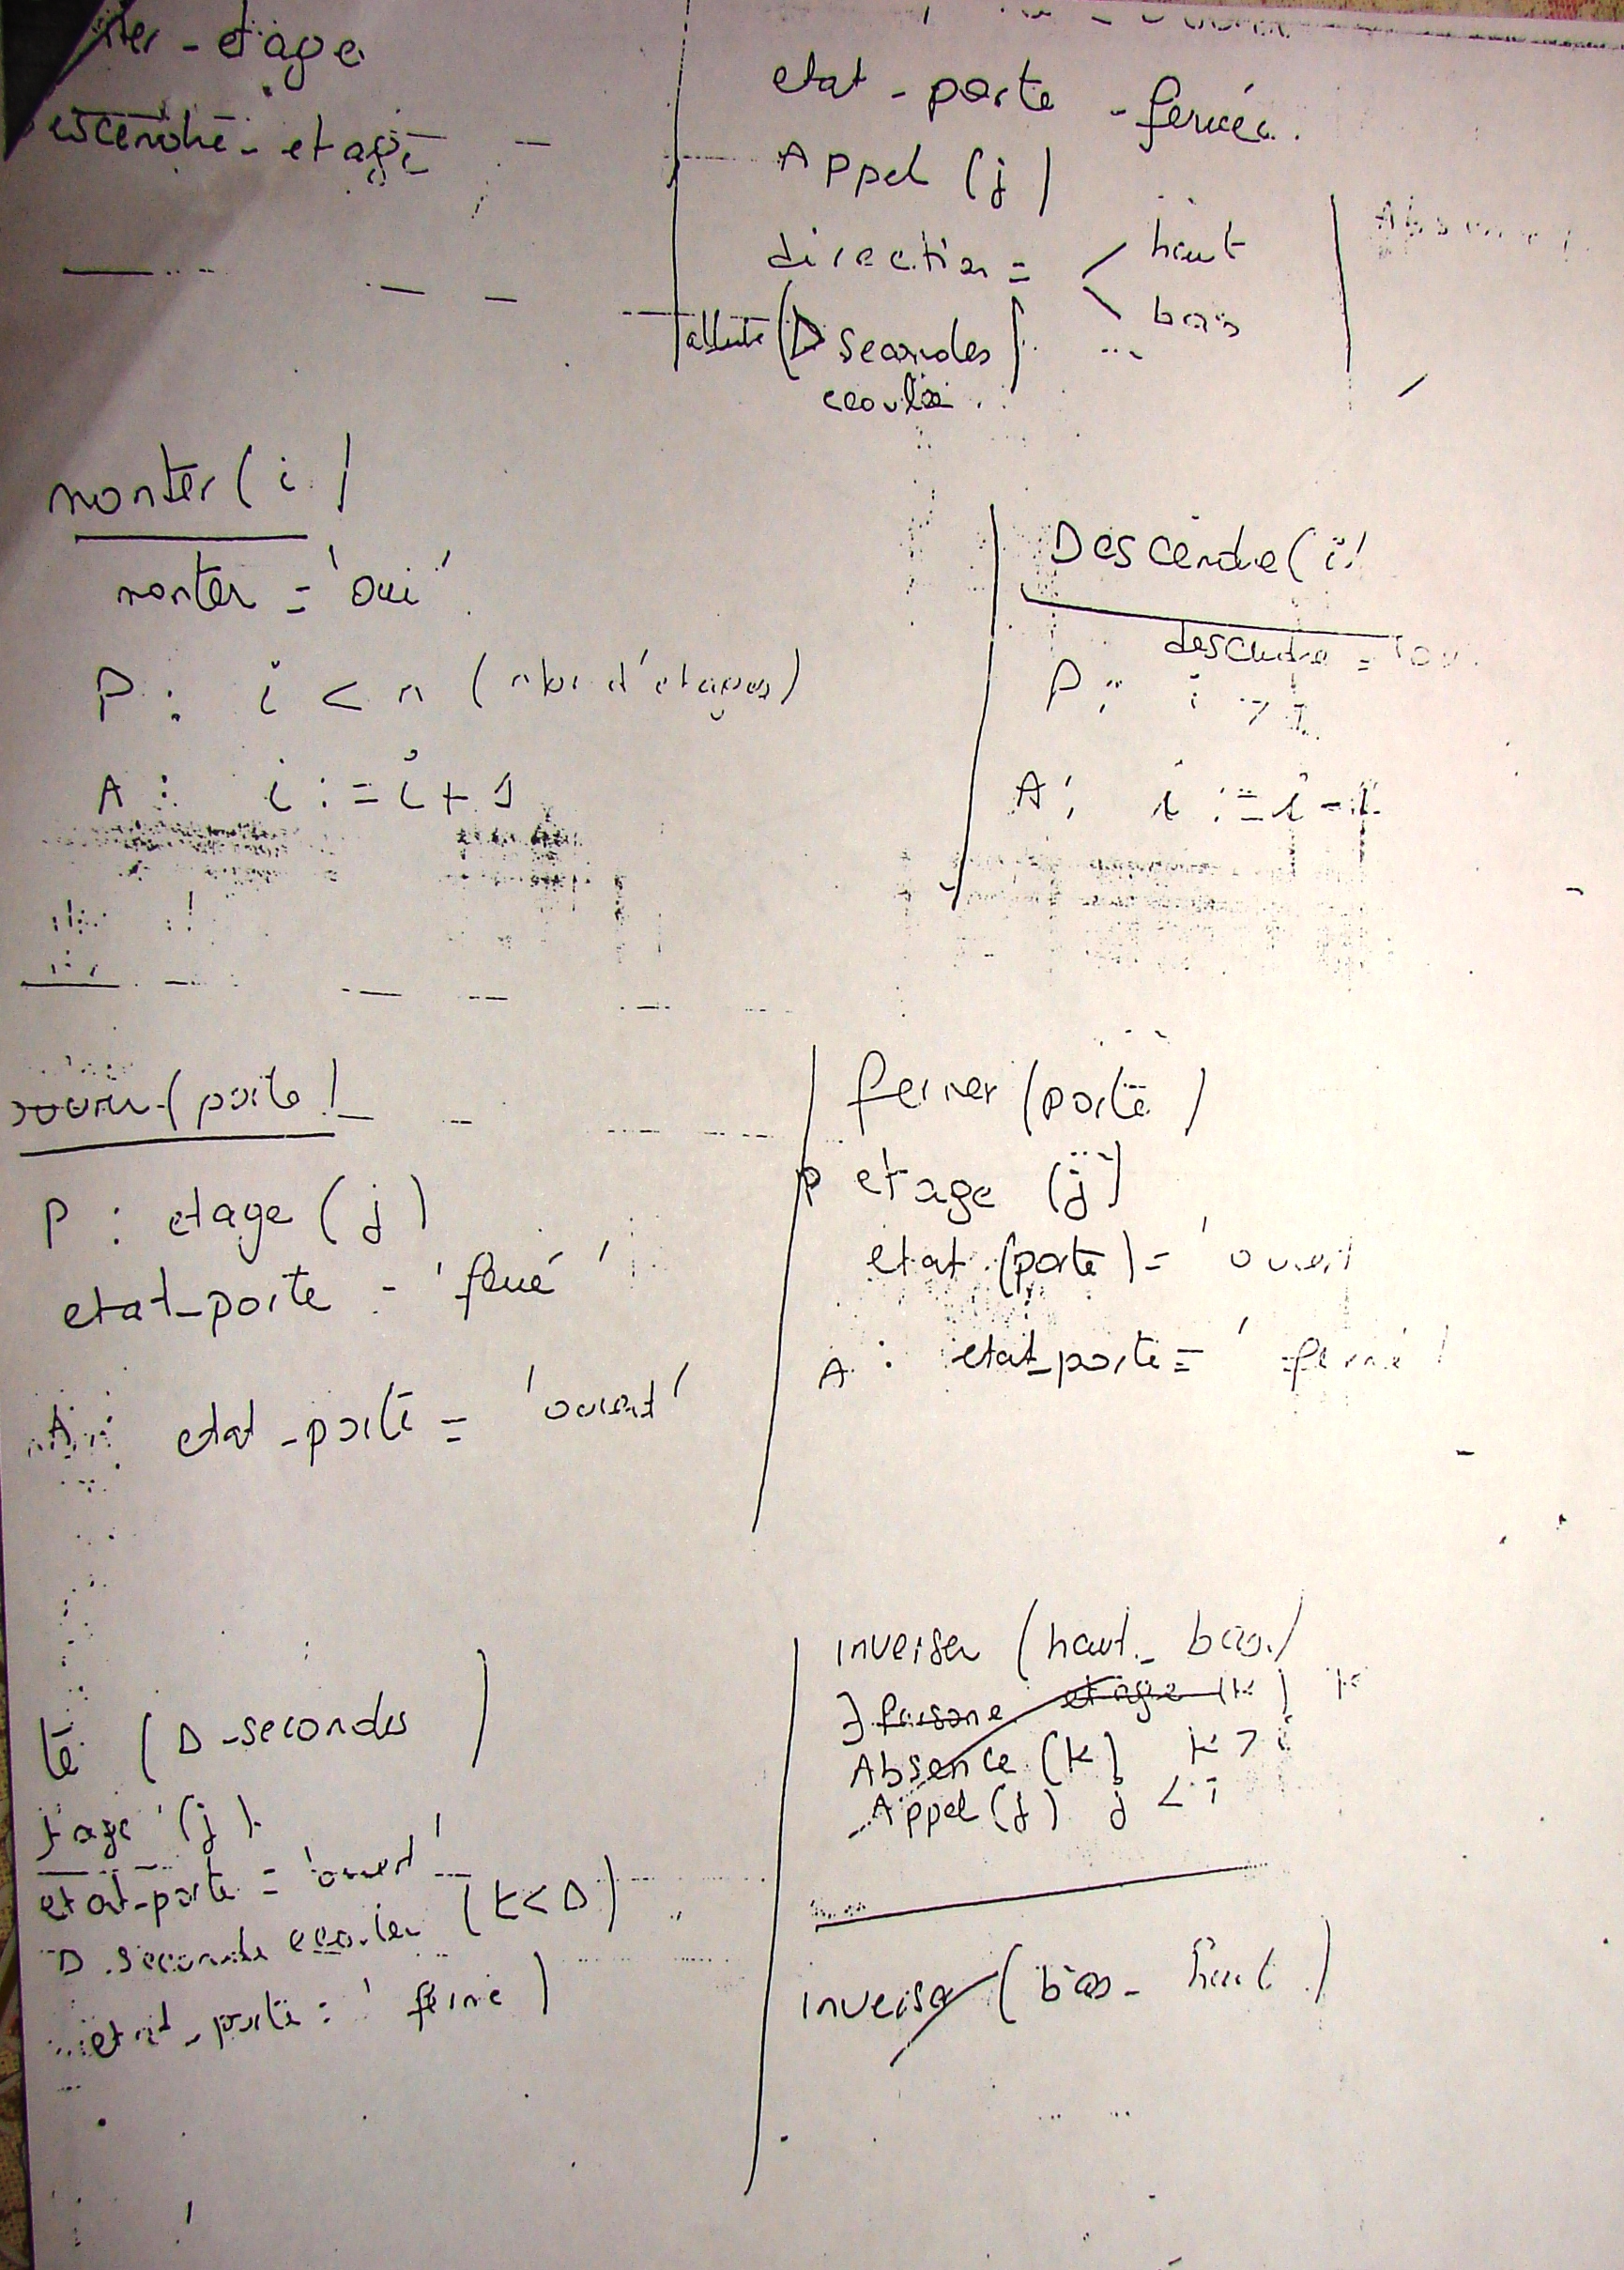 etage
etage
etat - porte - fermée.
Appel (j)
direction = < haut
bas
(D secondes)
monter(i)
monter = 'oui'
P : i < n (nbr d'etages)
A : i := i + 1
Descendre(i)
descendre =
P : i > 1
A : i := i - 1
(porte)
P : etage (j)
etat_porte = 'fermé'
A : etat_porte = 'ouvert'
fermer (porte)
P etage (j)
etat (porte) = 'ouvert
A : etat_porte = 'fermé'
té (D_secondes)
(j)
etat_porte = 'ouvert'
D seconde (t<D)
etat_porte = 'fermé
inverser (haut_bas)
etage (k) k
Absence (k) k > i
Appel (j) j < i
inverser (bas_haut)